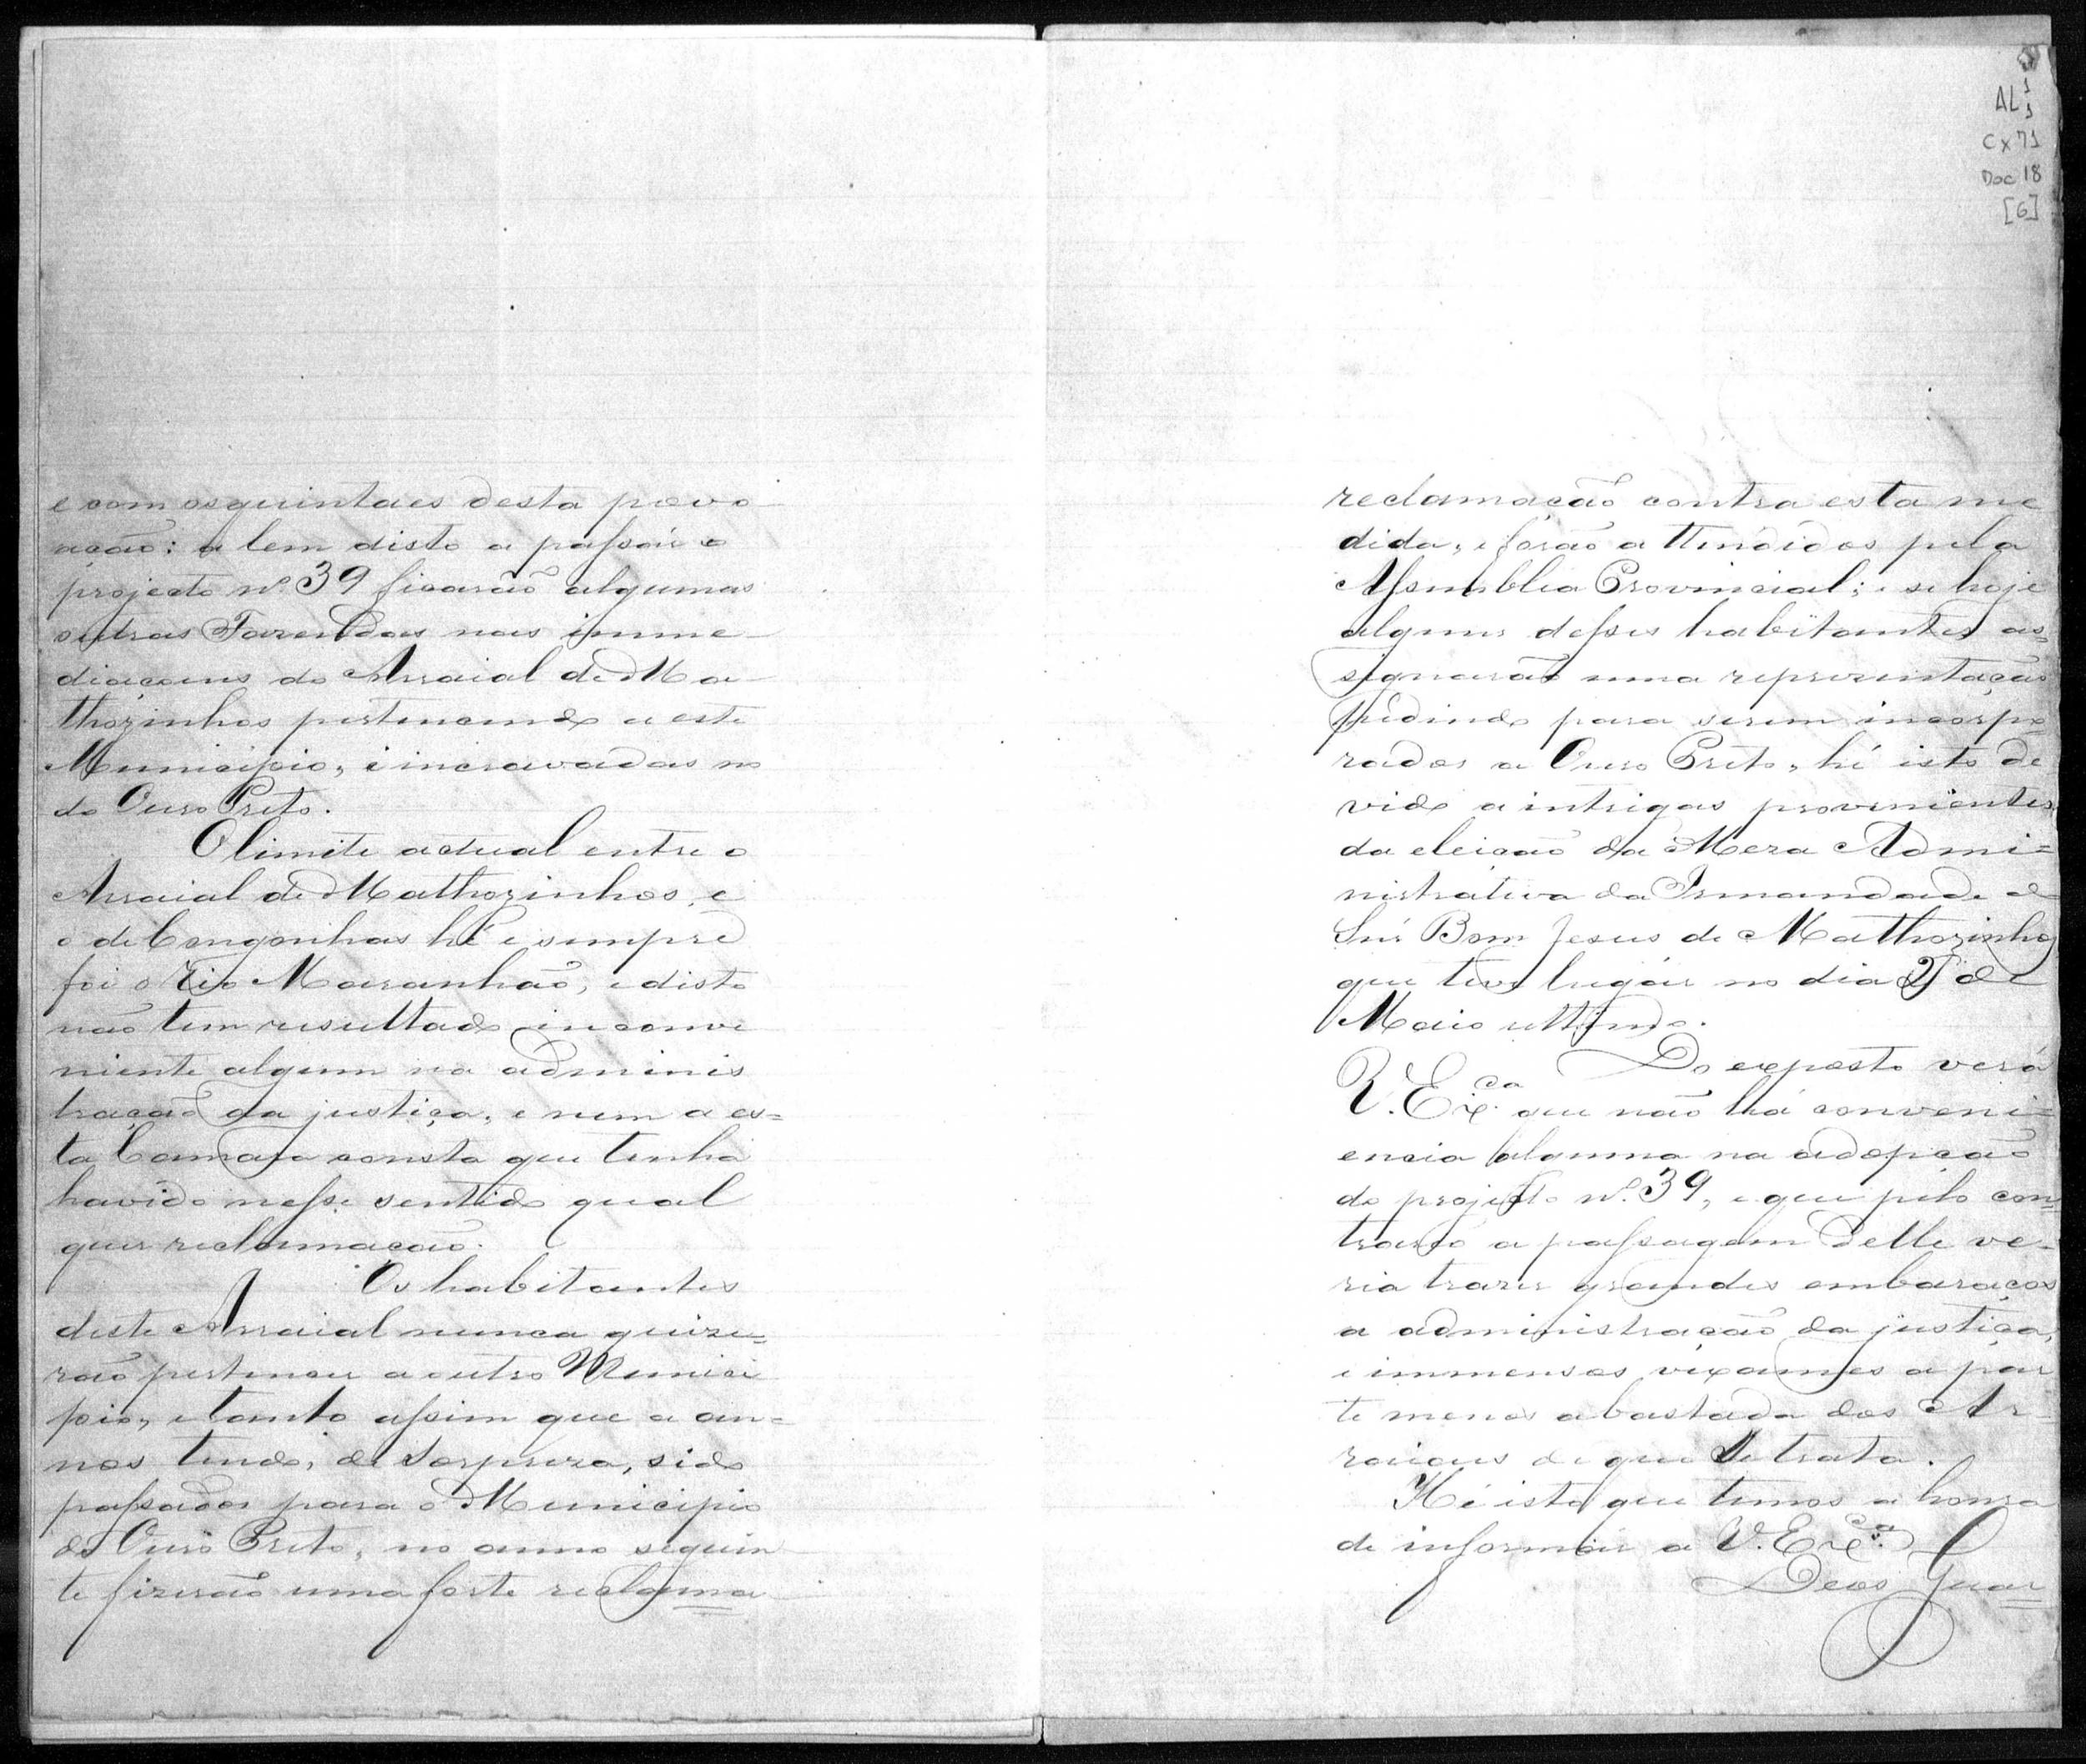 e com os quintaes desta povo
ação: a lem disto a passar o
projecto nº 39 ficarão algumas
outras Fazendas nas imme-
diaçoens do Arraial de Ma-
thozinhos pertencendo a este
Municipio, e incravadas no
do Ouro Preto.
O limite actual entre o
Arraial de Mathozinhos, e
o de Congonhas hé e sempre
foi o Rio Maranhão, e disto
não tem resultado inconve
niente algum na adminis
tração da justiça, e nem a es=
ta Camara consta que tenha
havido nesse sentido qual
quer reclamação.
Os habitantes
deste Arraial nunca quize=
rão pertencer a outro Munici
pio, e tanto assim que a an=
nos tendo, de sorpreza, sido
passados para o Municipio
do Ouro Preto, no anno seguin
te fizerão uma forte reclama
AL 1
1
Cx 71
Doc 18
[6]
reclamação contra esta me
dida, e forão attendidos pela
Assemblea Provincial; e se hoje
alguns desses habitantes as=
signarão uma representação
pedindo para serem incorpo
rados a Ouro Preto, hé isto de
vido a intrigas provenientes
da eleição da Meza Admi=
nistrativa da Irmandade do
Snr Bom Jesus de Mathozinhos
que teve lugar no dia de
Maio ultimo.
Do exposto verá
V. Exca. que não há conveni=
encia alguma na adopção
do projecto nº. 39, e que pelo con=
trario a passagem delle ve-
ria trazer grandes embaraços
a administração da justiça,
e immensos vexames a par
te menos abastada dos Ar-
raiaes de que se trata.
Hé isto que temos a honra
de informar a V. Exca.
Deos Guar